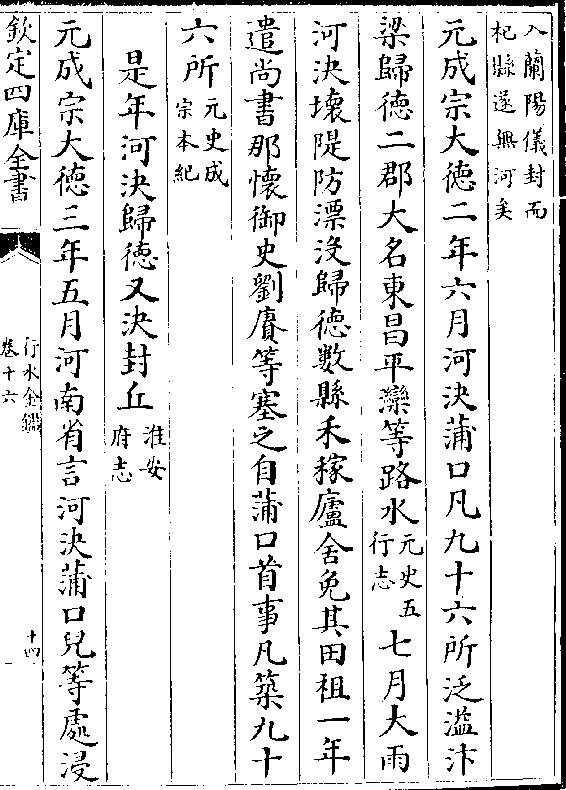 入蘭陽儀封而
杞縣遂無河矣
元成宗大徳二年六月河決蒲口凡九十六所泛溢汴
梁歸徳二郡大名東昌平灤等路水元史五行志七月大雨
河決壊隄防漂没歸徳數縣禾稼廬舍免其田租一年
遣尚書那懷御史劉賡等塞之自蒲口首事凡築九十
六所元史成宗本紀
是年河決歸徳又決封丘淮安府志
元成宗大徳三年五月河南省言河決蒲口兒等處浸
欽定四庫全書
行水金鑑
卷十六
十四